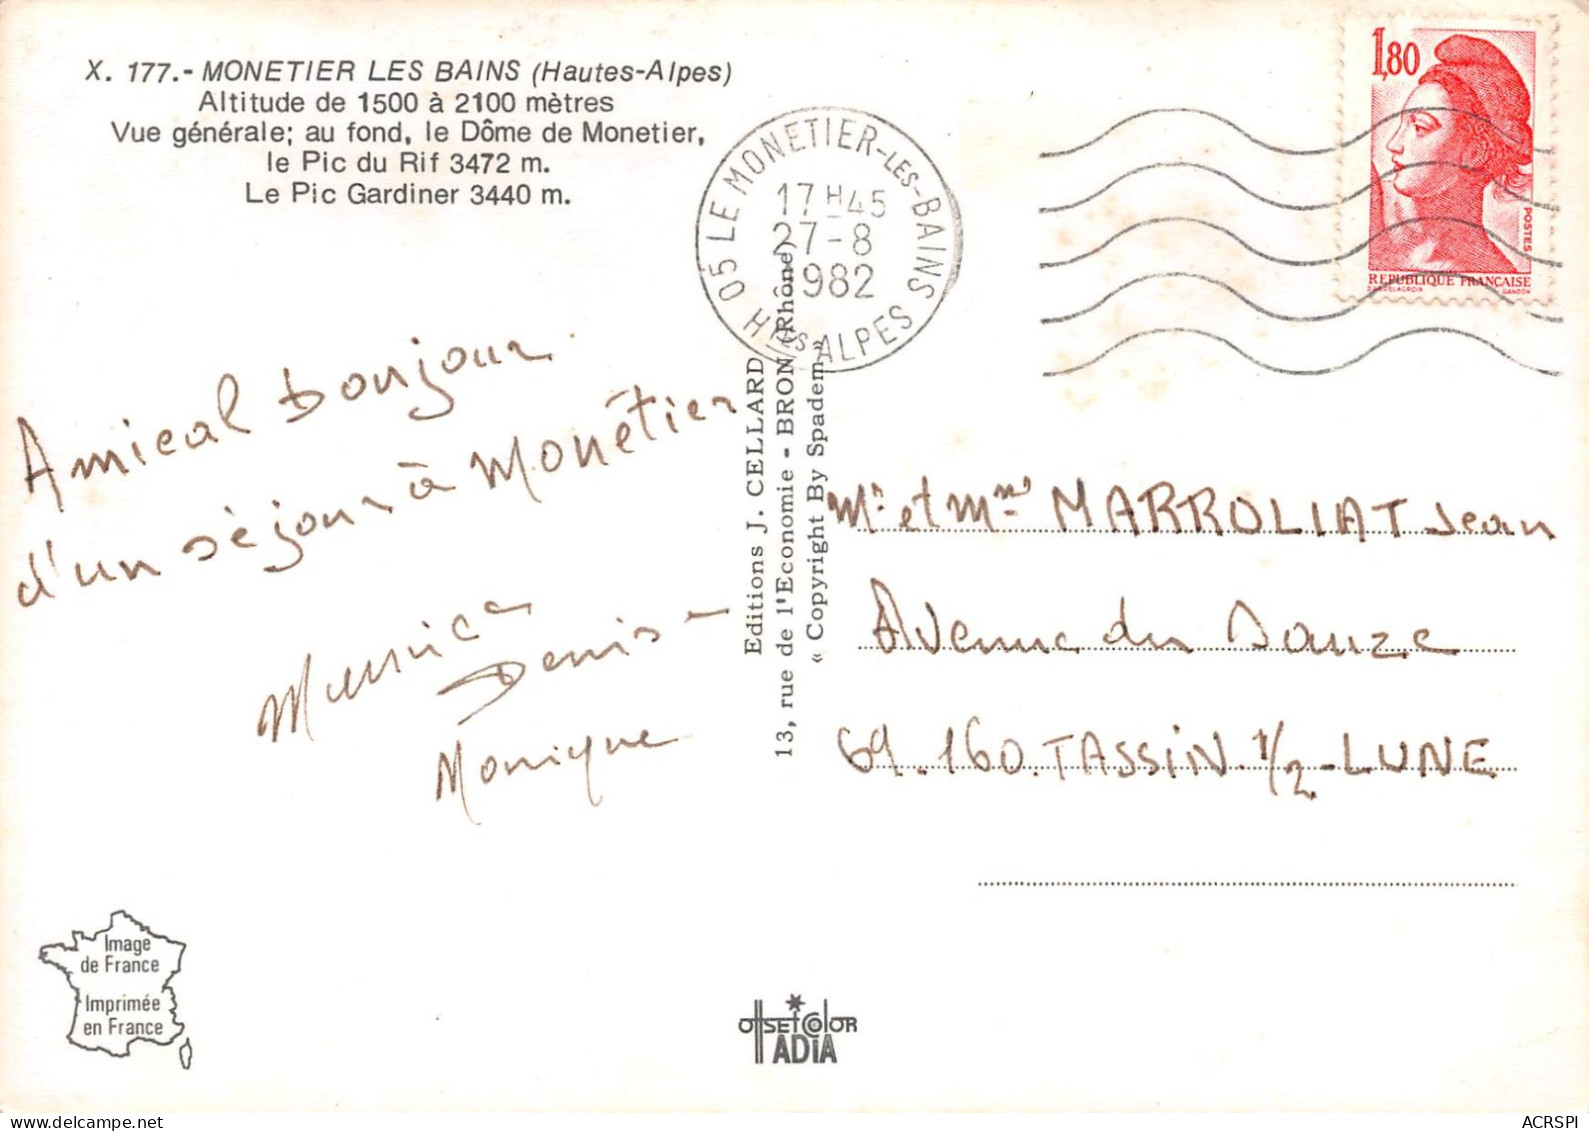 X. 177.- MONETIER LES BAINS (Hautes-Alpes)
Altitude de 1500 à 2100 mètres
Vue générale; au fond, le Dôme de Monetier,
le Pic du Rif 3472 m.
Le Pic Gardiner 3440 m.
05 LE MONETIER-LES-BAINS
17H45
27-8
1982
HTES ALPES
1,80
POSTES
REPUBLIQUE FRANÇAISE
D'AP. DELACROIX GANDON
Amical bonjour
d'un séjour à Monêtier
Denise
Monique
Editions J. CELLARD
13, rue de l'Economie - BRON (Rhône)
« Copyright By Spadem »
Mr et Mme MARROLIAT Jean
Avenue du
69.160.TASSIN.1/2-LUNE
Image
de France
Imprimée
en France
OFFSET COLOR
IADIA
ACRSPI